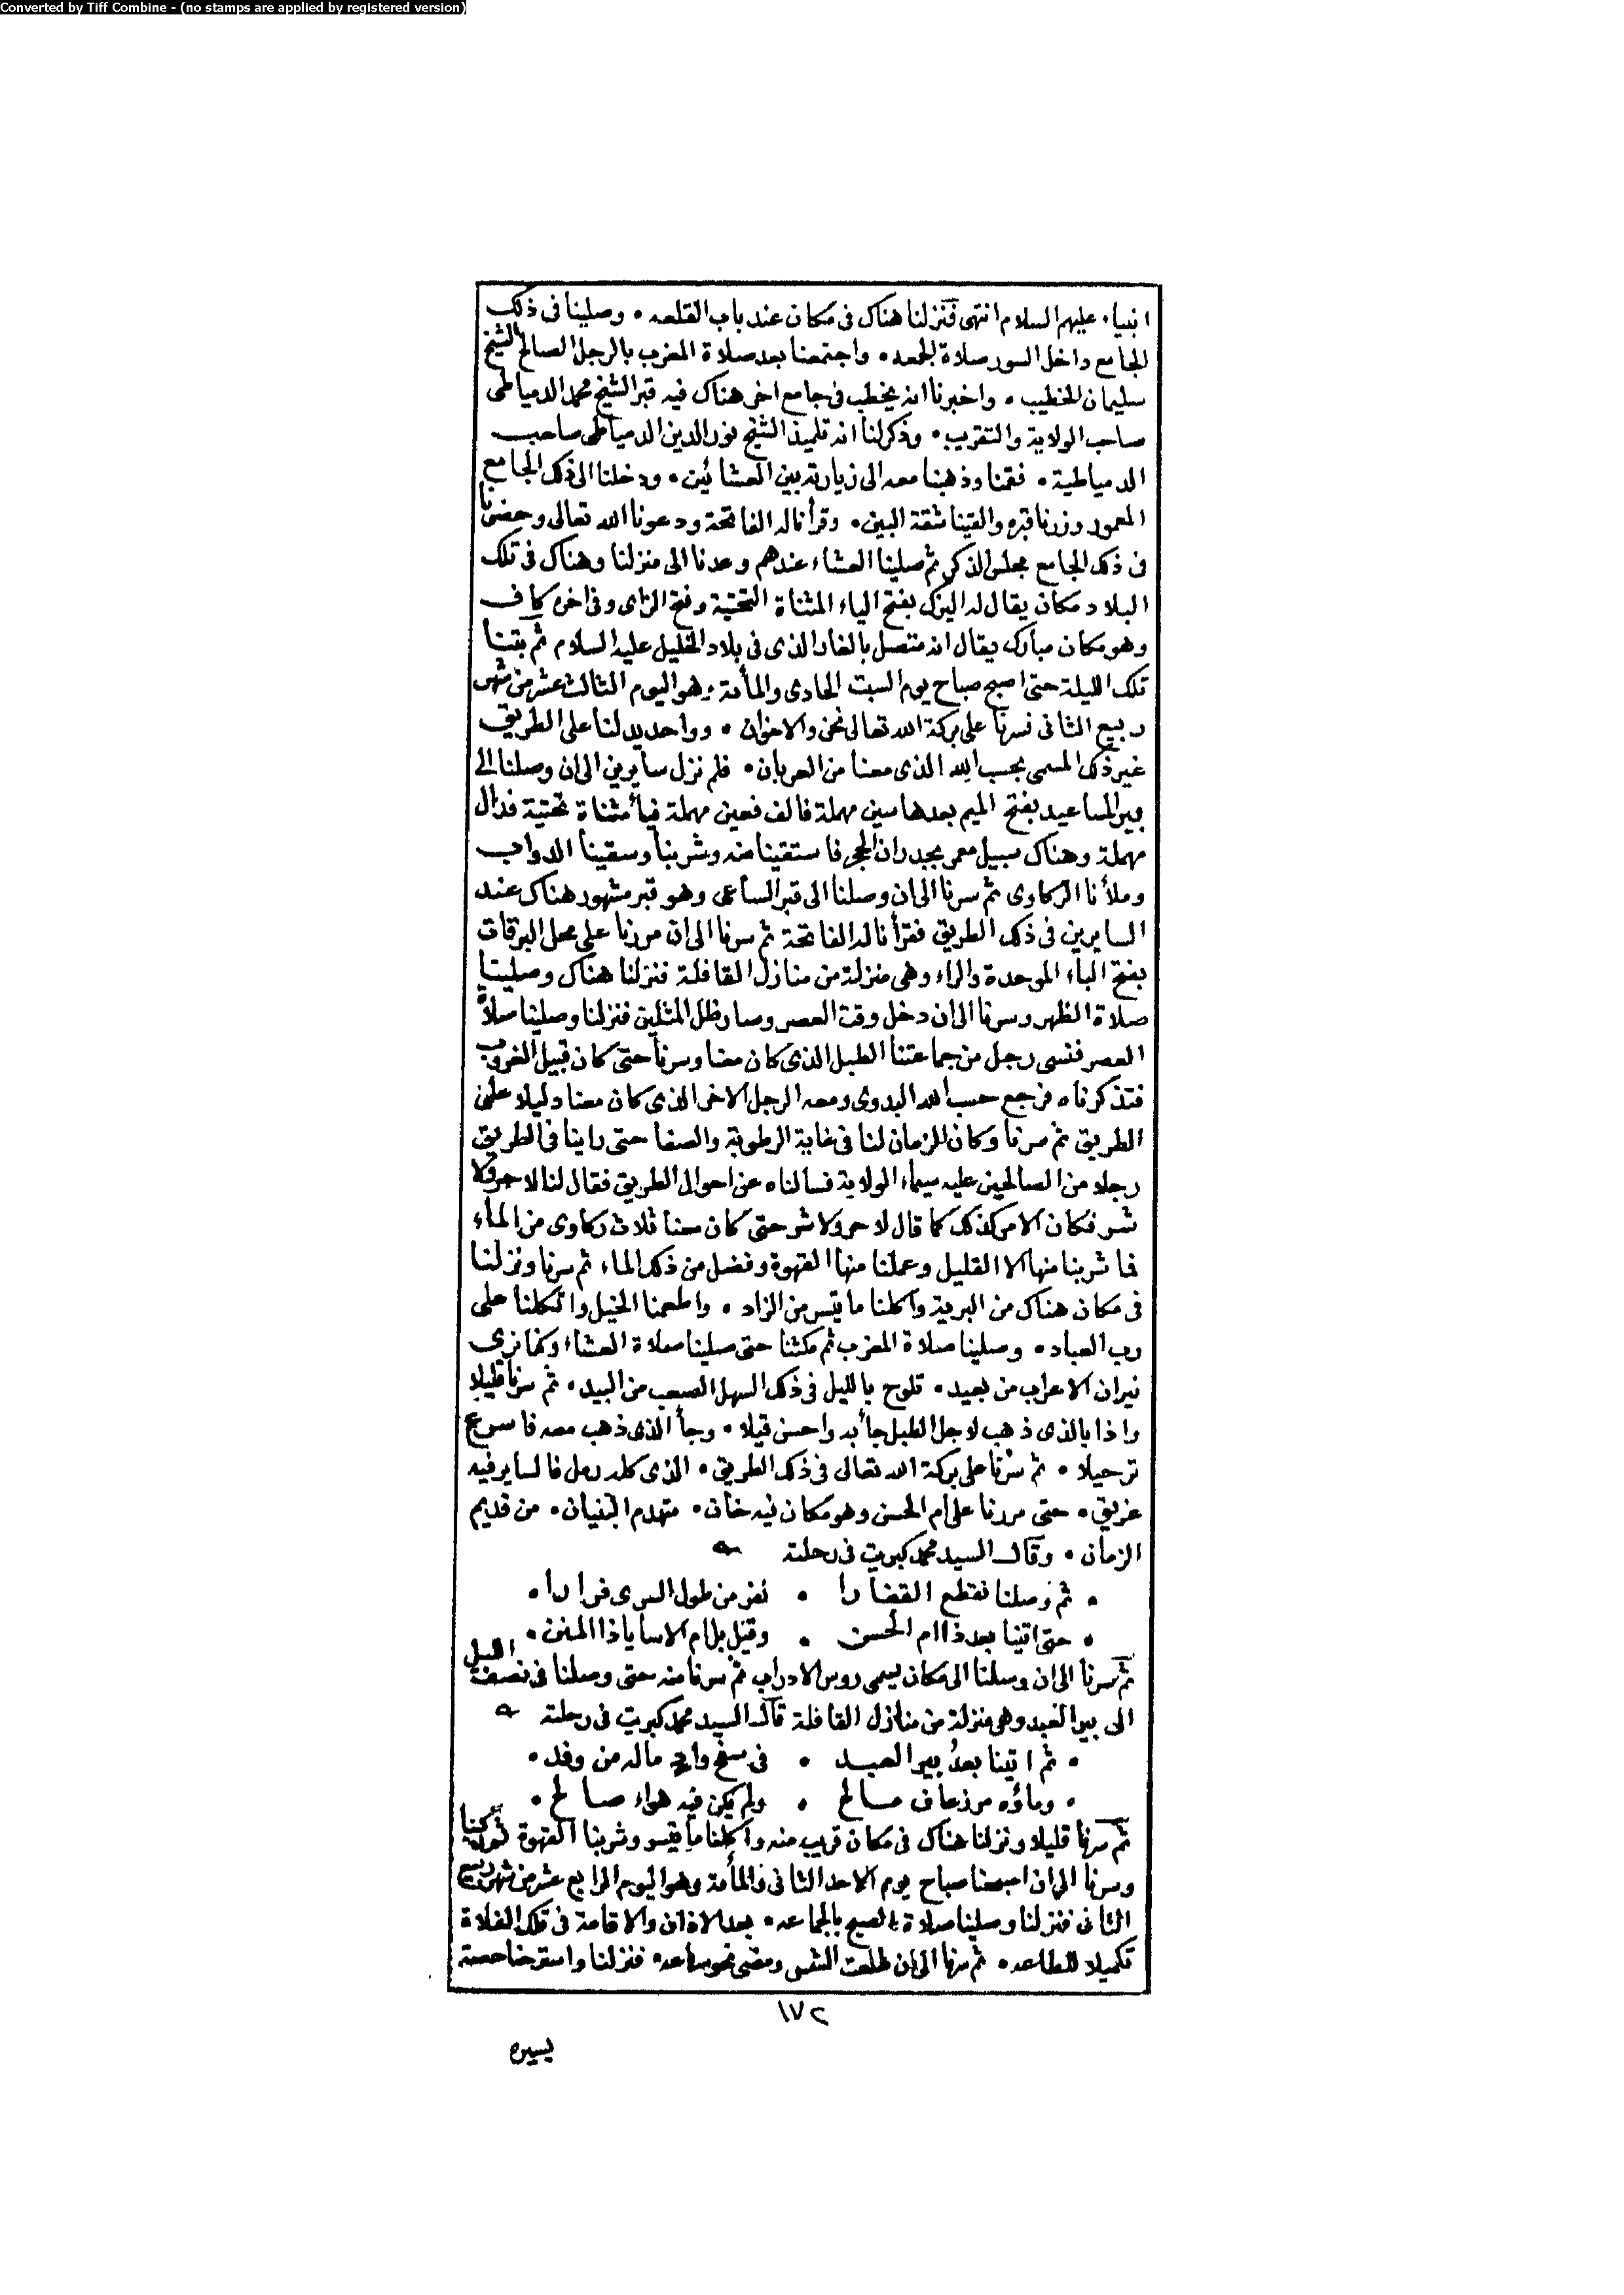 Converted by Tiff Combine - (no stamps are applied by registered version)
انبياء عليهم السلام انتهى فنزلنا هناك فى مكان عند باب القلعه • وصلينا فى ذلك
الجامع داخل السور صلاة الجمعه • واجتمعنا بعد صلاة المغرب بالرجل الصالح الشيخ
سليمان الخطيب • واخبرنا انه يخطب فى جامع اخر هناك فيه قبر الشيخ محمد الدمياطى
صاحب الولاية والتقريب • وذكر لنا انه تلميذ الشيخ نور الدين الدمياطى صاحب
الدمياطية • فقمنا وذهبنا معه الى زيارته بين العشائين • ودخلنا الى ذلك الجامع
المعمور وزرنا قبره والقينا شقة البين • وقرأنا له الفاتحة ودعونا الله تعالى وحضرنا
فى ذلك الجامع مجلس الذكر ثم صلينا العشاء عندهم وعدنا الى منزلنا وهناك فى تلك
البلاد مكان يقال له اليزك بفتح الياء المثناة التحتية وفتح الزاى وفى اخره كاف
وهو مكان مبارك يقال انه متصل بالغار الذى فى بلاد الخليل عليه السلام ثم بتنا
تلك الليلة حتى اصبح صباح يوم السبت الحادى والمأىة وهو اليوم الثالث عشر من شهر
ربيع الثانى فسرنا على بركة الله تعالى نحن والاخوان • وواحد يدلنا على الطريق
غير ذلك المسمى بحسب الله الذى معنا من العربان • فلم نزل سايرين الى ان وصلنا الى
بير المساعيد بفتح الميم بعدها سين مهملة فالف فعين مهملة فيأ مثناة تحتية فدال
مهملة وهناك سبيل معمر بجدران الحجر فاستقينا منه وشربنا وسقينا الدواب
وملأنا الركاوى ثم سرنا الى ان وصلنا الى قبر الساعى وهو قبر مشهور هناك عند
السايرين فى ذلك الطريق فقرأنا له الفاتحة ثم سرنا الى ان مررنا على محل البرقات
بفتح الباء الموحدة والراء وهى منزلة من منازل القافلة فنزلنا هناك وصلينا
صلاة الظهر وسرنا الى ان دخل وقت العصر وصار ظل المثلين فنزلنا وصلينا صلاة
العصر فنسى رجل من جماعتنا الطبل الذى كان معنا وسرنا حتى كان قبيل الغروب
فتذكرناه فرجع حسب الله البدوى ومعه الرجل الاخر الذى كان معنا دليلا على
الطريق ثم سرنا وكان الزمان لنا فى غاية الرطوبة والصفا حتى راينا فى الطريق
رجلا من الصالحين عليه سيماء الولاية فسالناه عن احوال الطريق فقال لنا لا حر ولا
شر فكان الامر كذلك كما قال لا حر ولا شر حتى كان معنا ثلاث ركاوى من الماء
فما شربنا منها الا القليل وعملنا منها القهوة وفضل من ذلك الماء ثم سرنا ونزلنا
فى مكان هناك من البرية واكلنا ما تيسر من الزاد • واطعمنا الخيل واتكلنا على
رب العباد • وصلينا صلاة المغرب ثم مكثنا حتى صلينا صلاة العشاء وكنا نرى
نيران الاعراب من بعيد • تلوح بالليل فى ذلك السهل الصعب من البيد • ثم سرنا قليلا
واذا بالذى ذهب لاجل الطبل جأ به واحسن قيلا • وجأ الذى ذهب معه فاسرع
ترحيلا • ثم سرنا على بركة الله تعالى فى ذلك الطريق • الذى كله رمل فالساير فيه
غريق • حتى مررنا على ام الحسن وهو مكان فيه خان • متهدم البنيان • من قديم
الزمان • وقال السيد محمد كبريت فى رحلته
• ثم وصلنا نقطع القفارا • نفر من طول السرى فرارا •
• حتى اتينا بعد ذا ام الحسن • وقيل بل ام الاسا ياذا المنن •
ثم سرنا الى ان وصلنا الى مكان يسمى روس الادراب ثم سرنا منه حتى وصلنا فى نصف الليل
الى بير العبد وهى منزلة من منازل القافلة قال السيد محمد كبريت فى رحلته
• ثم اتينا بعد بير العبد • فى سفح واد ماله من وفد •
• وماؤه مر زعاف مالح • ولم يكن فيه هواء صالح •
ثم سرنا قليلا ونزلنا هناك فى مكان قريب منه واكلنا ما تيسر وشربنا القهوة ثم ركبنا
وسرنا الى ان اصبحنا صباح يوم الاحد الثانى والمأىة وهو اليوم الرابع عشر من شهر ربيع
الثانى فنزلنا وصلينا صلاة الصبح بالجماعه • بعد الاذان والاقامة فى تلك الفلاة
تكميلا للطاعه • ثم سرنا الى ان طلعت الشمس ومضى نحو ساعه • فنزلنا واسترحنا حصة
١٧٢
يسيره